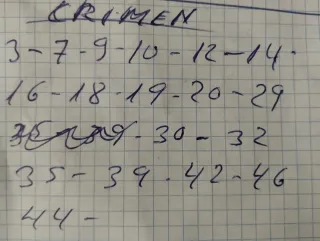 CRIMEN
3-7-9-10-12-14-
16-18-19-20-29
30-32
35-39-42-46
44-